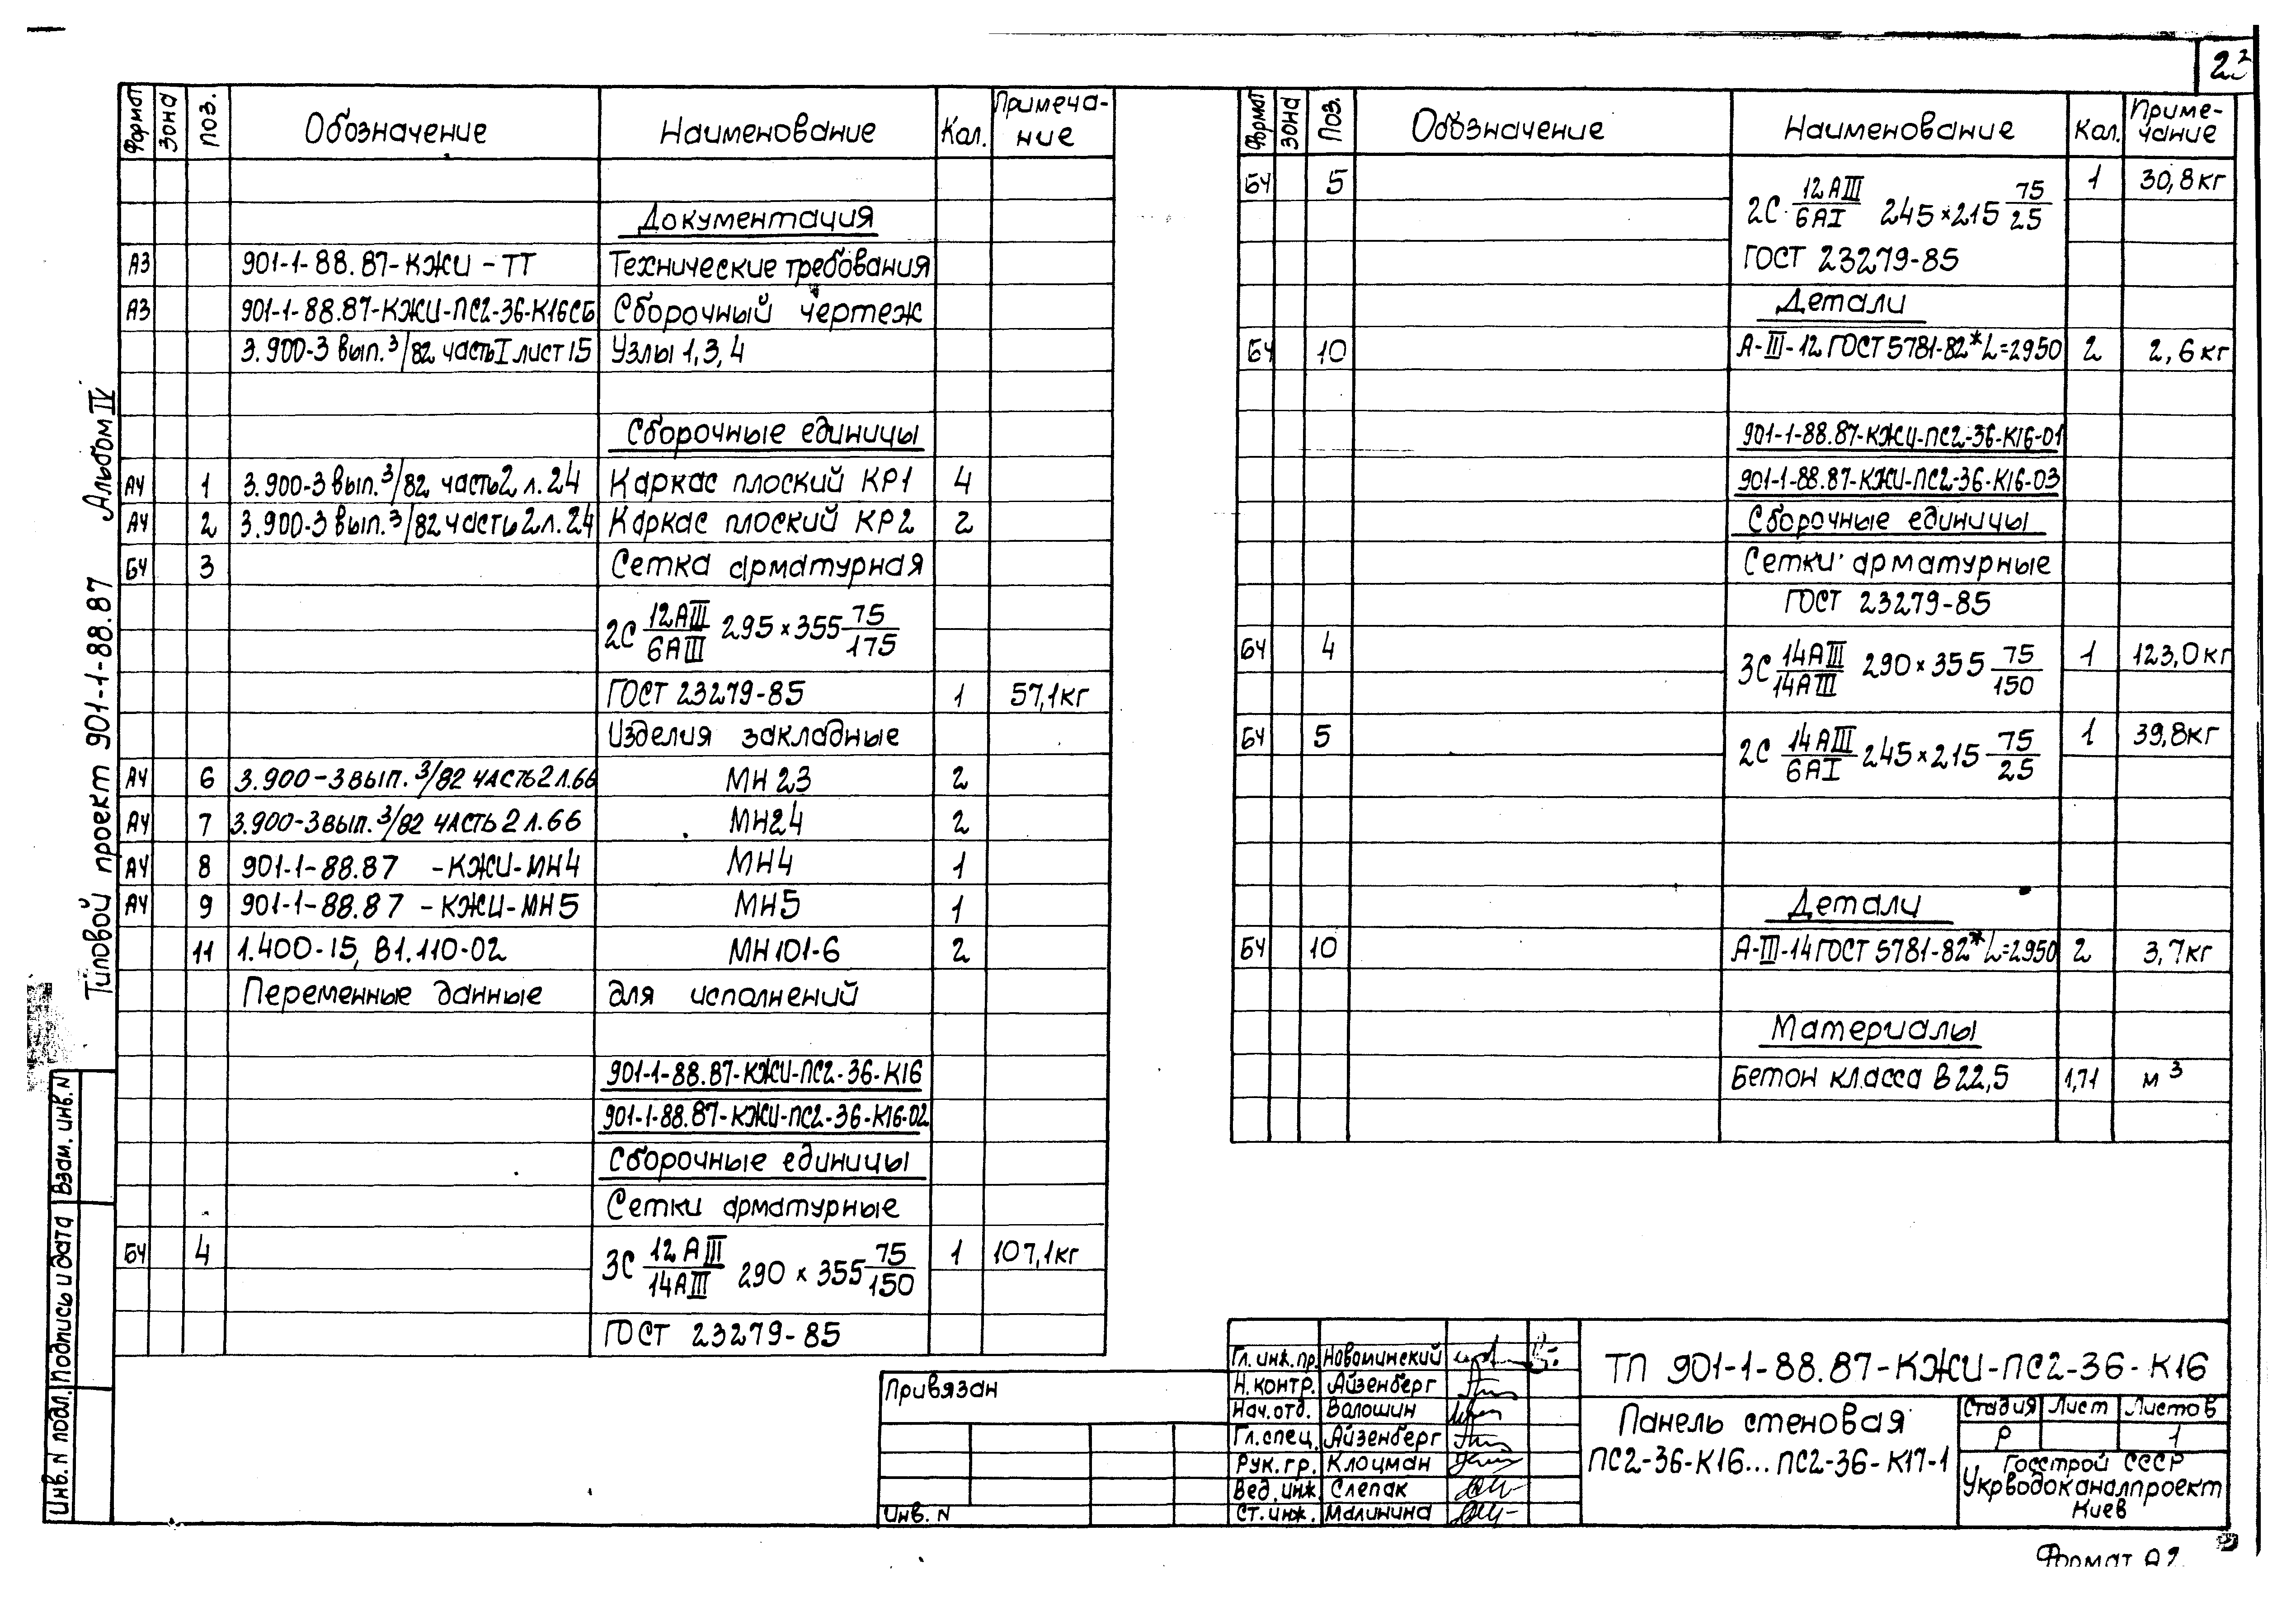 Формат Зона Поз. Обозначение Наименование Кол. Примечание
Документация
А3 901-1-88.87-КЖИ-ТТ Технические требования
А3 901-1-88.87-КЖИ-ПС2-36-К16СБ Сборочный чертеж
3.900-3 вып.3/82 часть I лист 15 Узлы 1,3,4
Сборочные единицы
А4 1 3.900-3 вып.3/82 часть 2 л.24 Каркас плоский КР1 4
А4 2 3.900-3 вып.3/82 часть 2 л.24 Каркас плоский КР2 2
БЧ 3 Сетка арматурная
2С 12АIII/6АIII 295×355 75/175
ГОСТ 23279-85 1 57,1кг
Изделия закладные
А4 6 3.900-3 вып.3/82 часть 2 л.66 МН23 2
А4 7 3.900-3 вып.3/82 часть 2 л.66 МН24 2
А4 8 901-1-88.87 -КЖИ-МН4 МН4 1
А4 9 901-1-88.87 -КЖИ-МН5 МН5 1
11 1.400-15, В1.110-02 МН101-6 2
Переменные данные для исполнений
901-1-88.87-КЖИ-ПС2-36-К16
901-1-88.87-КЖИ-ПС2-36-К16-02
Сборочные единицы
Сетки арматурные
БЧ 4 3С 12АIII/14АIII 290×355 75/150 1 107,1кг
ГОСТ 23279-85
Формат Зона Поз. Обозначение Наименование Кол. Примечание
БЧ 5 2С 12АIII/6АI 245×215 75/25 1 30,8кг
ГОСТ 23279-85
Детали
БЧ 10 А-III-12 ГОСТ 5781-82* L=2950 2 2,6кг
901-1-88.87-КЖИ-ПС2-36-К16-01
901-1-88.87-КЖИ-ПС2-36-К16-03
Сборочные единицы
Сетки арматурные
ГОСТ 23279-85
БЧ 4 3С 14АIII/14АIII 290×355 75/150 1 123,0кг
БЧ 5 2С 14АIII/6АI 245×215 75/25 1 39,8кг
Детали
БЧ 10 А-III-14 ГОСТ 5781-82* L=2950 2 3,7кг
Материалы
Бетон класса В22,5 1,71 м³
Типовой проект 901-1-88.87 Альбом IV
Инв.N подл. Подпись и дата Взам. инв.N
Привязан
Инв. N
Гл. инж. пр. Новоминский
Н.контр. Айзенберг
Нач.отд. Волошин
Гл.спец. Айзенберг
Рук.гр. Клоцман
Вед.инж. Слепак
Ст.инж. Малинина
ТП 901-1-88.87-КЖИ-ПС2-36-К16
Панель стеновая
ПС2-36-К16...ПС2-36-К17-1
Стадия Лист Листов
Р 1
Госстрой СССР
Укрводоканалпроект
Киев
Формат А2